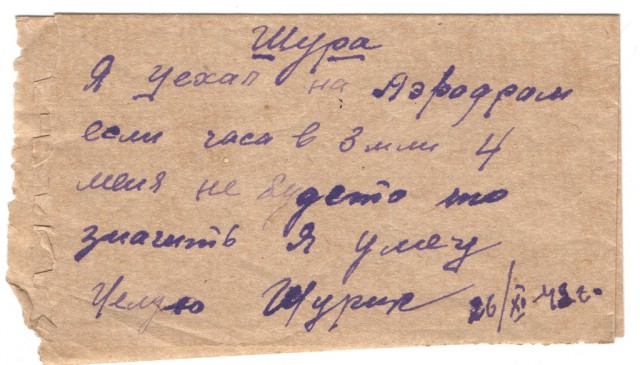 Шура
Я уехал на Аэродром
если часа в 3 или 4
меня не будето то
значить Я улечу
Целую Шурик 26/XI-42 г.